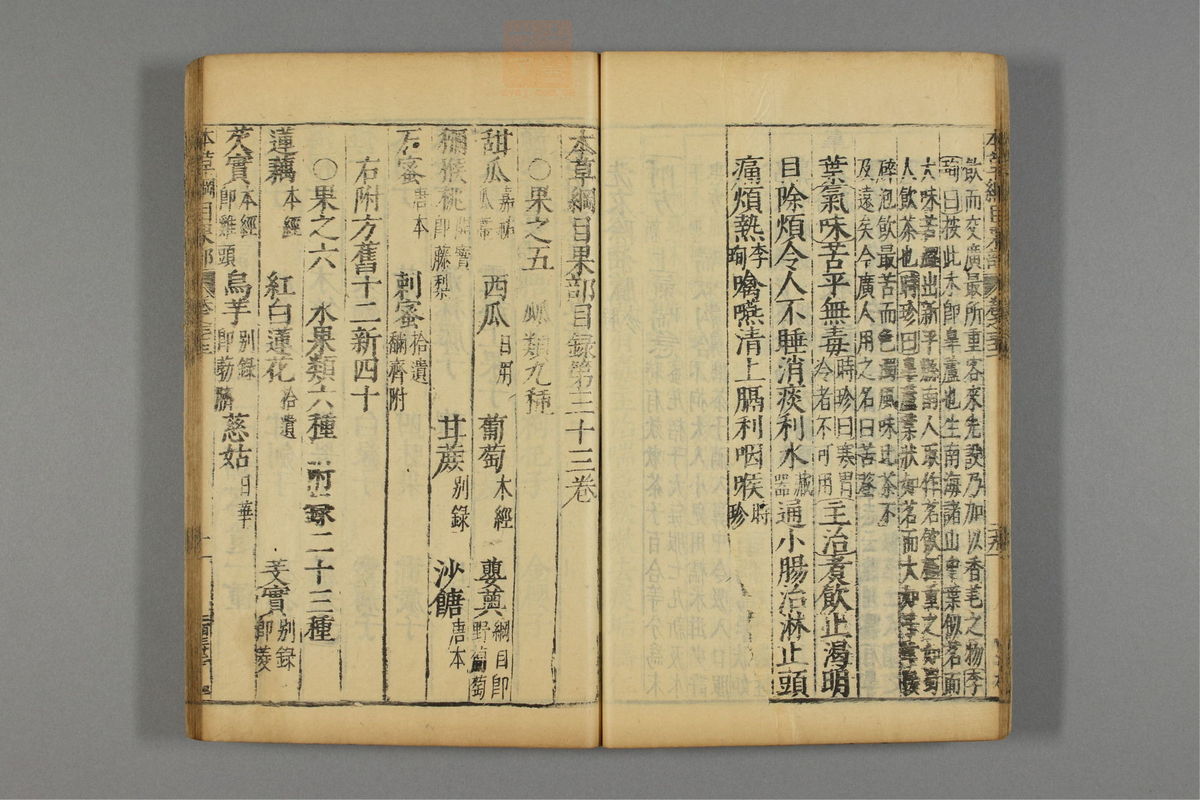 飲而交廣最所重客來先設乃加以香芼之物李
珣曰按此木即皋蘆也生南海諸山中葉似茗而
大味苦澀出新平縣南人取作茗飲極重之如蜀
人飲茶也時珍曰皋蘆葉狀如茗而大如手掌
碎泡飲最苦而色濁風味比茶不
及遠矣今廣人用之名曰苦䔲
葉氣味苦平無毒時珍曰寒胃
冷者不可用主治煮飲止渴明
目除煩令人不睡消痰利水藏器通小腸治淋止頭
痛煩熱李珣噙嚥清上膈利咽喉時珍
本草綱目果部目録第三十三卷
○果之五 蓏類九種
甜瓜嘉祐瓜蒂 西瓜日用 葡萄本經 蘡薁綱目即野葡萄
獼猴桃開寶即藤梨 甘蔗别録 沙餹唐本
石蜜唐本 刺蜜拾遺䤄齊附
右附方舊十二新四十
○果之六 水果類六種 附録二十三種
蓮藕本經 紅白蓮花拾遺 芰實别録即菱
芡實本經即雞頭 烏芋别録即葧臍 慈姑日華
本草綱目果部